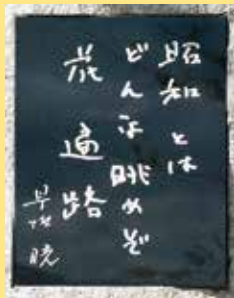 昭和とは
どんな眺めぞ
花遍路
早坂暁